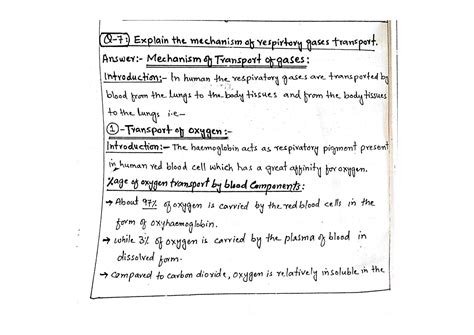 Q-7: Explain the mechanism of respirtory gases transport.
Answer:- Mechanism of Transport of gases:
Introduction:- In human the respiratory gases are transported by
blood from the lungs to the body tissues and from the body tissues
to the lungs i.e—
①-Transport of oxygen:-
Introduction:- The haemoglobin acts as respiratory pigment present
in human red blood cell which has a great affinity for oxygen.
%age of oxygen transport by blood Components:
→ About 97% of oxygen is carried by the red blood cells in the
form of oxyhaemoglobin.
→ while 3% of oxygen is carried by the plasma of blood in
dissolved form.
→ compared to carbon dioxide, oxygen is relatively insoluble in the